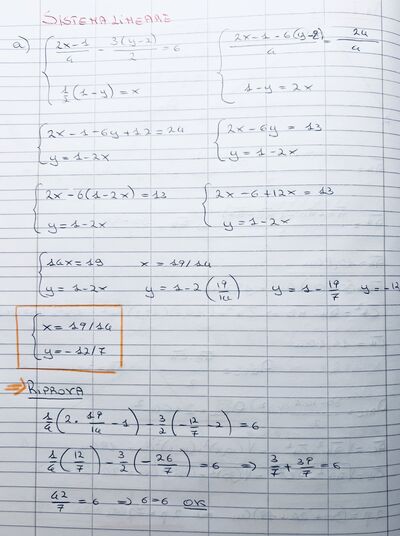 SISTEMA LINEARE
a) { (2x-1)/4 - 3(y-2)/2 = 6 { (2x-1-6(y-2))/4 = 24/4
1/2(1-y) = x 1-y = 2x
{ 2x-1-6y+12 = 24 { 2x-6y = 13
y = 1-2x y = 1-2x
{ 2x-6(1-2x) = 13 { 2x-6+12x = 13
y = 1-2x y = 1-2x
{ 14x = 19 x = 19/14
y = 1-2x y = 1-2(19/14) y = 1-19/7 y = -12
{ x = 19/14
y = -12/7
⇒ RIPROVA
1/4(2·19/14-1) - 3/2(-12/7-2) = 6
1/4(12/7) - 3/2(-26/7) = 6 ⇒ 3/7+39/7 = 6
42/7 = 6 ⇒ 6=6 OK